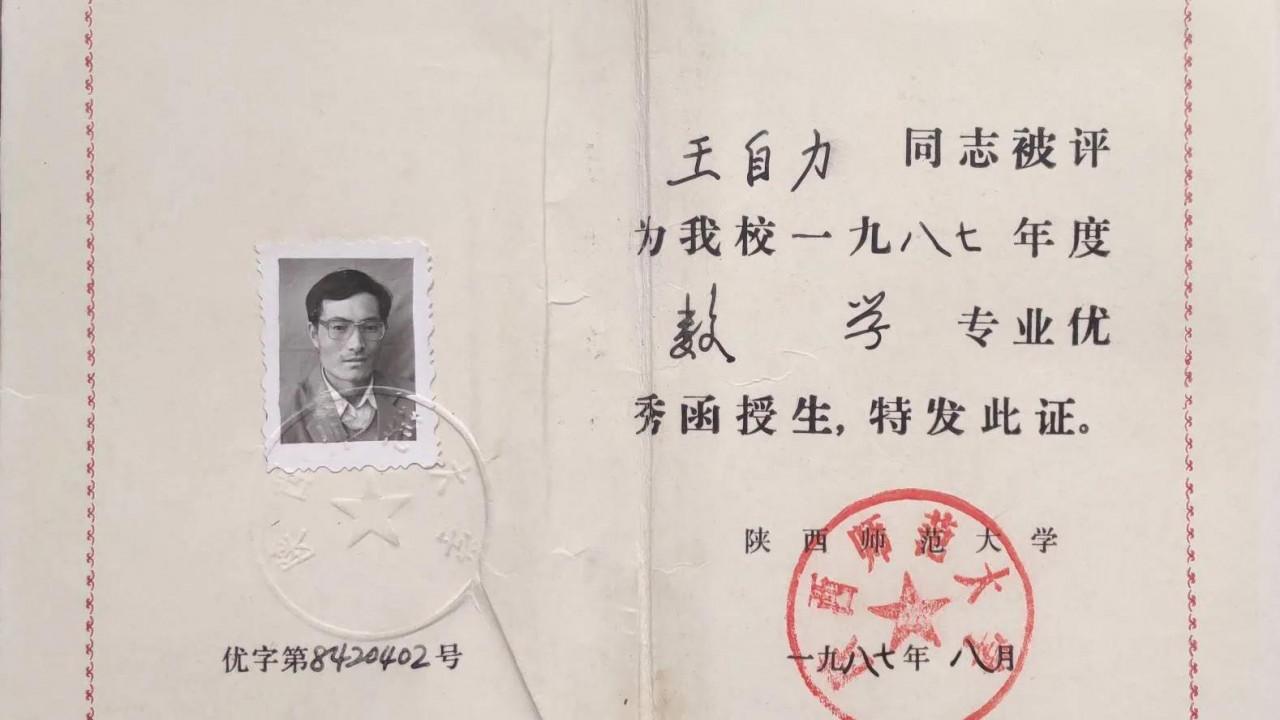 王自力 同志被评
为我校一九八七年度
数学专业优
秀函授生,特发此证。
陕西师范大学
一九八七年八月
优字第8420402号
西师范大